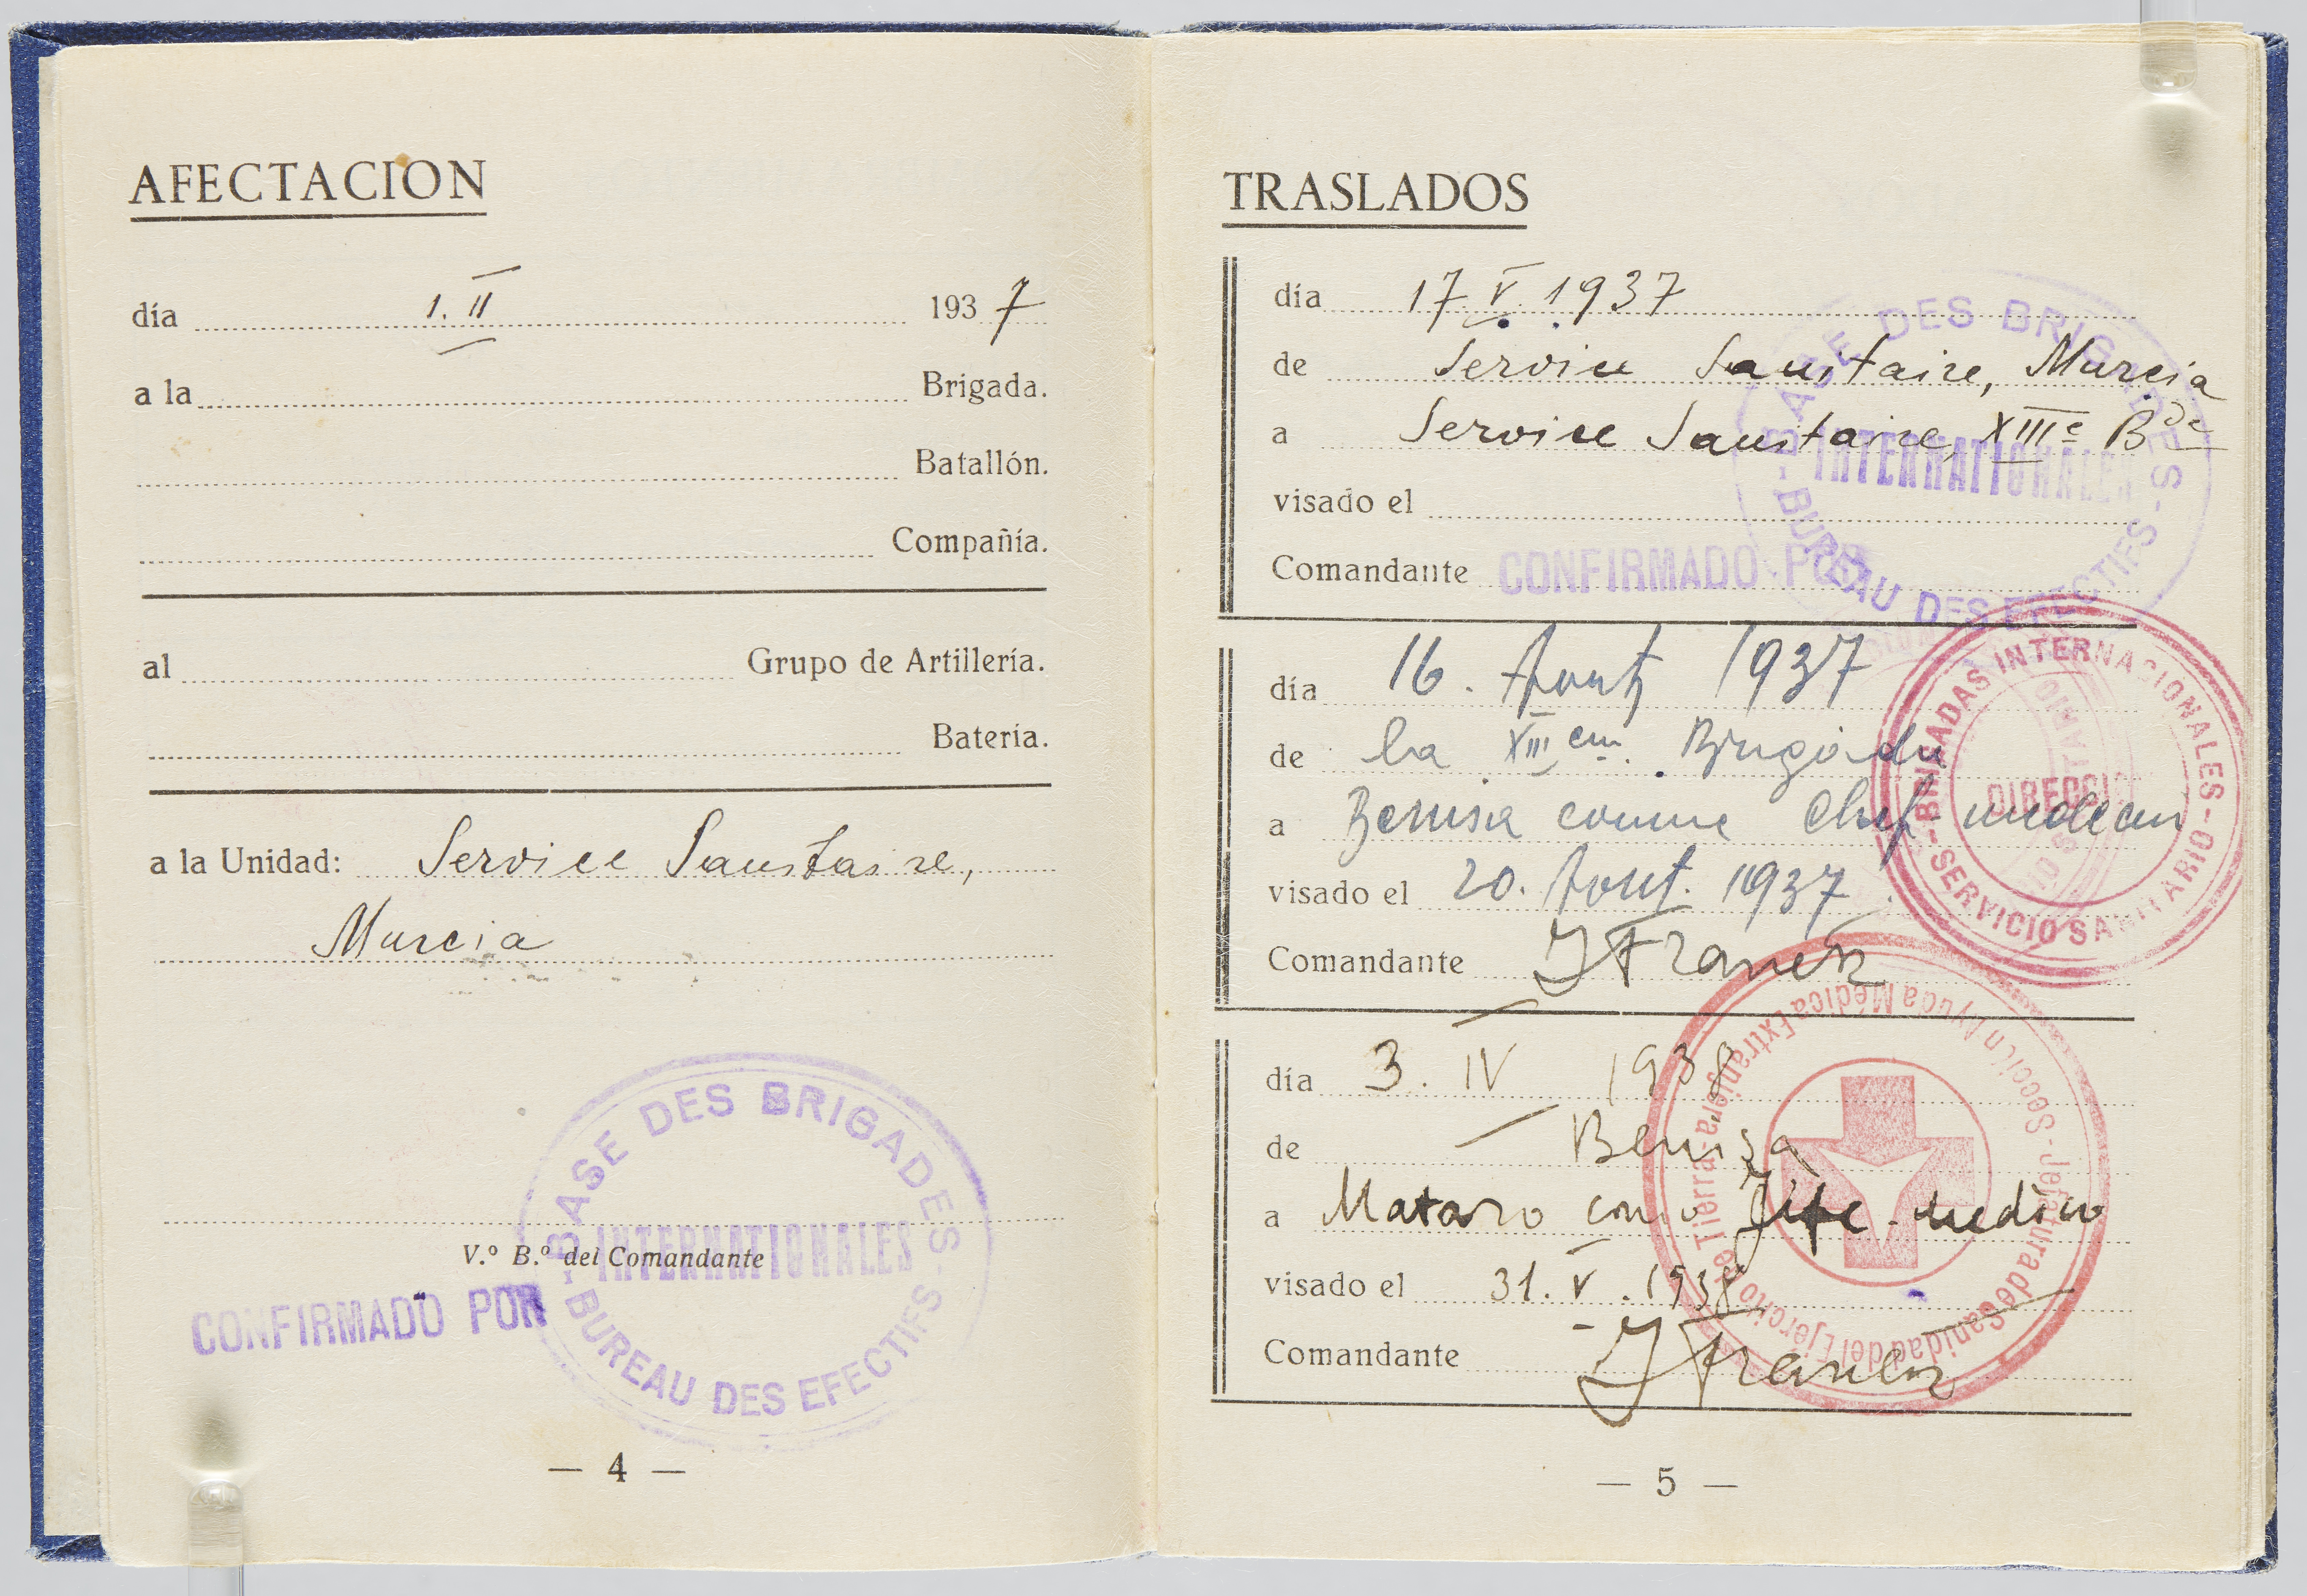 AFECTACION
día 1. II 1937
a la Brigada.
Batallón.
Compañía.
al Grupo de Artillería.
Batería.
a la Unidad: Service Sanitaire,
Murcia
V.º B.º del Comandante
CONFIRMADO POR
BASE DES BRIGADES
INTERNATIONALES
BUREAU DES EFECTIFS
— 4 —
TRASLADOS
día 17. V. 1937
de Service Sanitaire, Murcia
a Service Sanitaire, XIIIe Bde
visado el
Comandante
CONFIRMADO POR
BASE DES BRIGADES
INTERNATIONALES
BUREAU DES EFECTIFS
día 16. Aout 1937
de la XIII em. Brigade
a Benisa comme Chef medecin
visado el 20. Aout. 1937.
Comandante
BRIGADAS INTERNACIONALES
SERVICIO SANITARIO
día 3. IV 1938
de Benisa
a Mataro como Jefe-medico
visado el 31. V. 1938
Comandante
Jefatura de Sanidad del Ejército de Tierra-a
Sección Ayuda Médica Extranjera
— 5 —